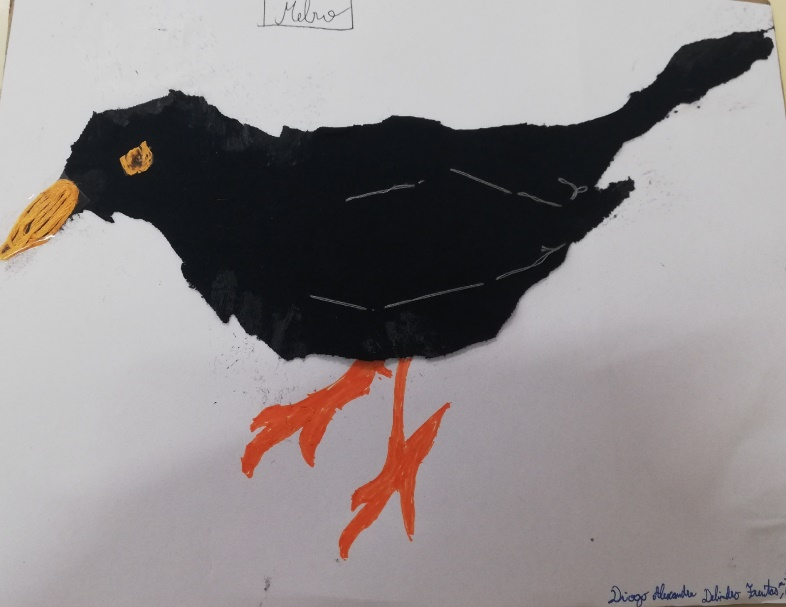 Melro
Diogo Alexandre Delindro Freitas,